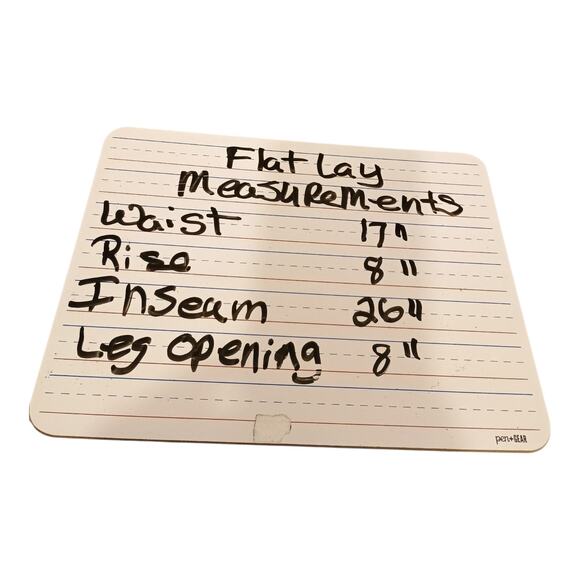 Flat Lay
Measurements
Waist 17"
Rise 8"
Inseam 26"
Leg Opening 8"
pen+GEAR